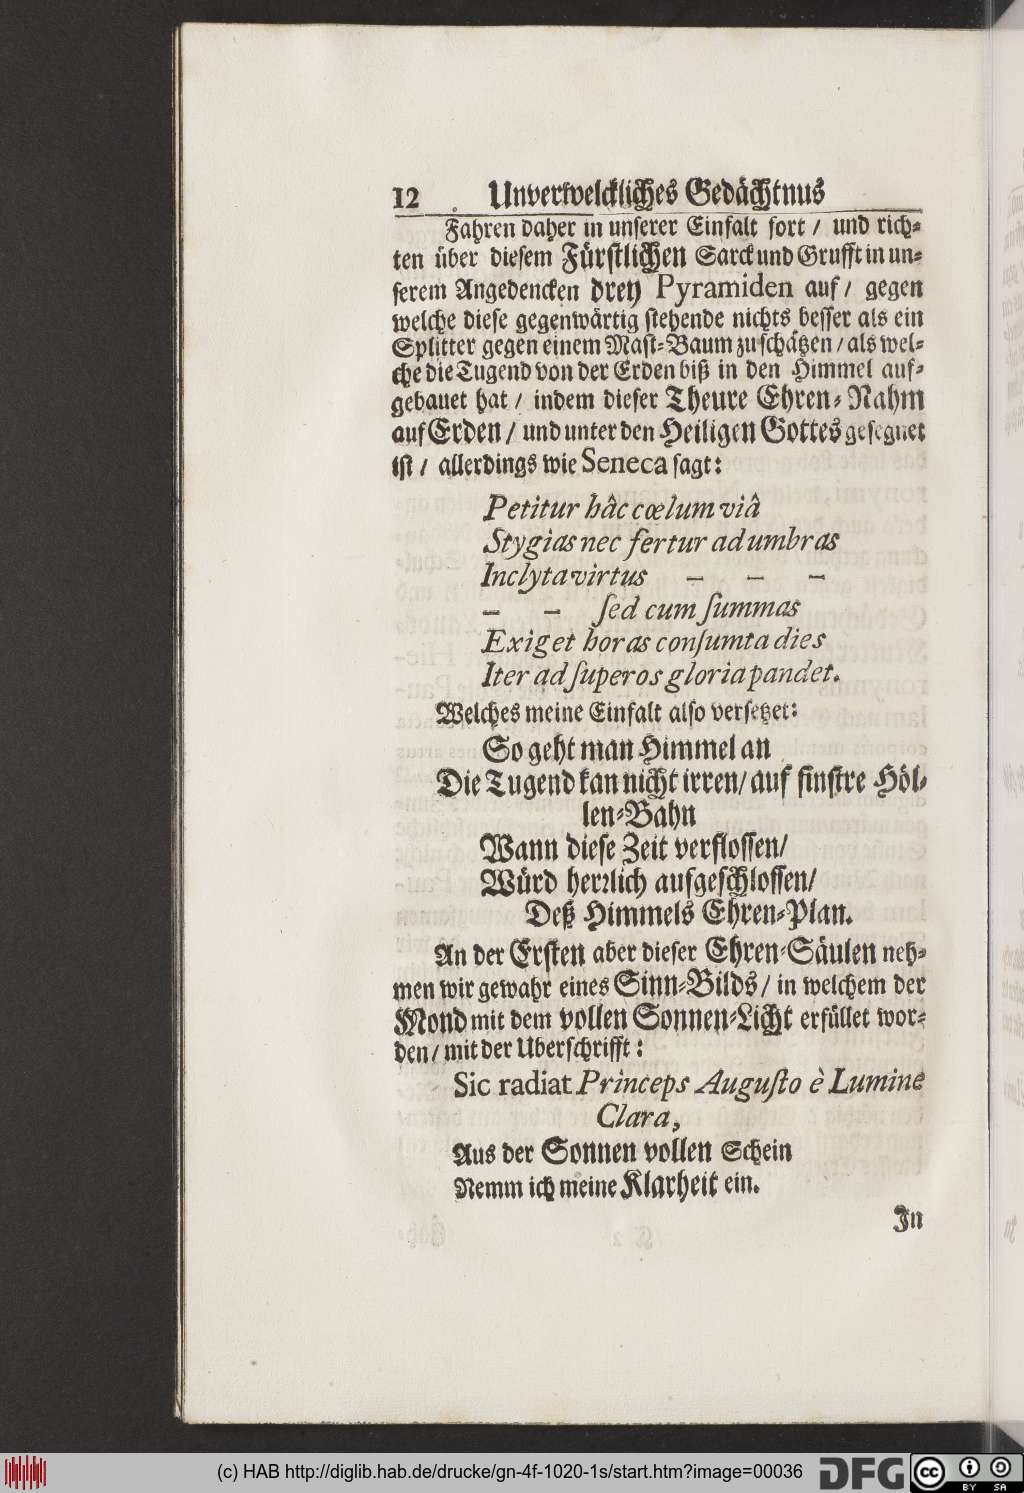 12 Unverwelckliches Gedächtnus
Fahren daher in unserer Einfalt fort / und rich-
ten über diesem Fürstlichen Sarck und Grufft in un-
serem Angedencken drey Pyramiden auf / gegen
welche diese gegenwärtig stehende nichts besser als ein
Splitter gegen einem Mast-Baum zu schätzen / als wel-
che die Tugend von der Erden biß in den Himmel auf-
gebauet hat / indem dieser Theure Ehren-Nahm
auf Erden / und unter den Heiligen Gottes gesegnet
ist / allerdings wie Seneca sagt:
Petitur hâc cœlum viâ
Stygias nec fertur ad umbras
Inclyta virtus – – –
– – ſed cum ſummas
Exiget horas conſumta dies
Iter ad ſuperos gloria pandet.
Welches meine Einfalt also versetzet:
So geht man Himmel an
Die Tugend kan nicht irren / auf finstre Höl-
len-Bahn
Wann diese Zeit verflossen /
Würd herrlich aufgeschlossen /
Deß Himmels Ehren-Plan.
An der Ersten aber dieser Ehren-Säulen neh-
men wir gewahr eines Sinn-Bilds / in welchem der
Mond mit dem vollen Sonnen-Licht erfüllet wor-
den / mit der Uberschrifft:
Sic radiat Princeps Auguſto è Lumine
Clara,
Aus der Sonnen vollen Schein
Nemm ich meine Klarheit ein.
In
(c) HAB http://diglib.hab.de/drucke/gn-4f-1020-1s/start.htm?image=00036
DFG
cc BY SA